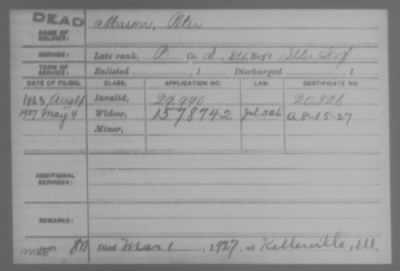 DEAD
NAME OF SOLDIER: Peter
SERVICE: Late rank, P Co. d, Reg't Ills. Inf
TERM OF SERVICE: Enlisted , 1 Discharged , 1
DATE OF FILING. CLASS. APPLICATION NO. LAW. CERTIFICATE NO.
1863, Aug Invalid, 29,990 20,826
1927 May 4 Widow, 1578742 a 8-15-27
Minor,
ADDITIONAL SERVICES:
REMARKS:
Died Mar 1, 1927, at Ill.